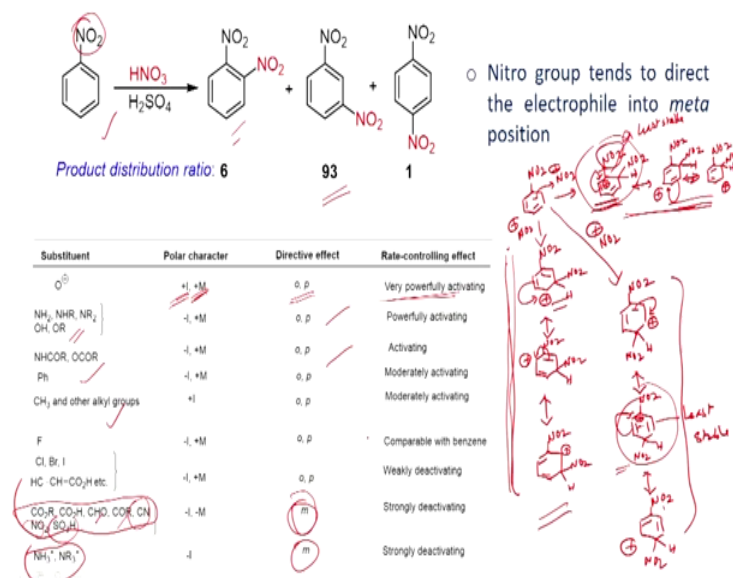 NO2
NO2
NO2
NO2
NO2
HNO3
H2SO4
+
+
NO2
NO2
Product distribution ratio: 6 93 1
○ Nitro group tends to direct
the electrophile into meta
position
Substituent Polar character Directive effect Rate-controlling effect
O⊖ +I, +M o, p Very powerfully activating
NH2, NHR, NR2
OH, OR -I, +M o, p Powerfully activating
NHCOR, OCOR -I, +M o, p Activating
Ph -I, +M o, p Moderately activating
CH3 and other alkyl groups +I o, p Moderately activating
F -I, +M o, p Comparable with benzene
Cl, Br, I
HC CH-CO2H etc. -I, +M o, p Weakly deactivating
CO2R, CO2H, CHO, COR, CN
NO2, SO3H -I, -M m Strongly deactivating
NH3+, NR3+ -I m Strongly deactivating
Least stable
NO2
NO2
NO2
NO2
H
NO2
NO2
H
NO2
NO2
NO2
NO2
NO2
H
NO2
NO2
H
NO2
H
NO2
NO2
H
NO2
NO2
H
Least
stable
NO2
H
NO2